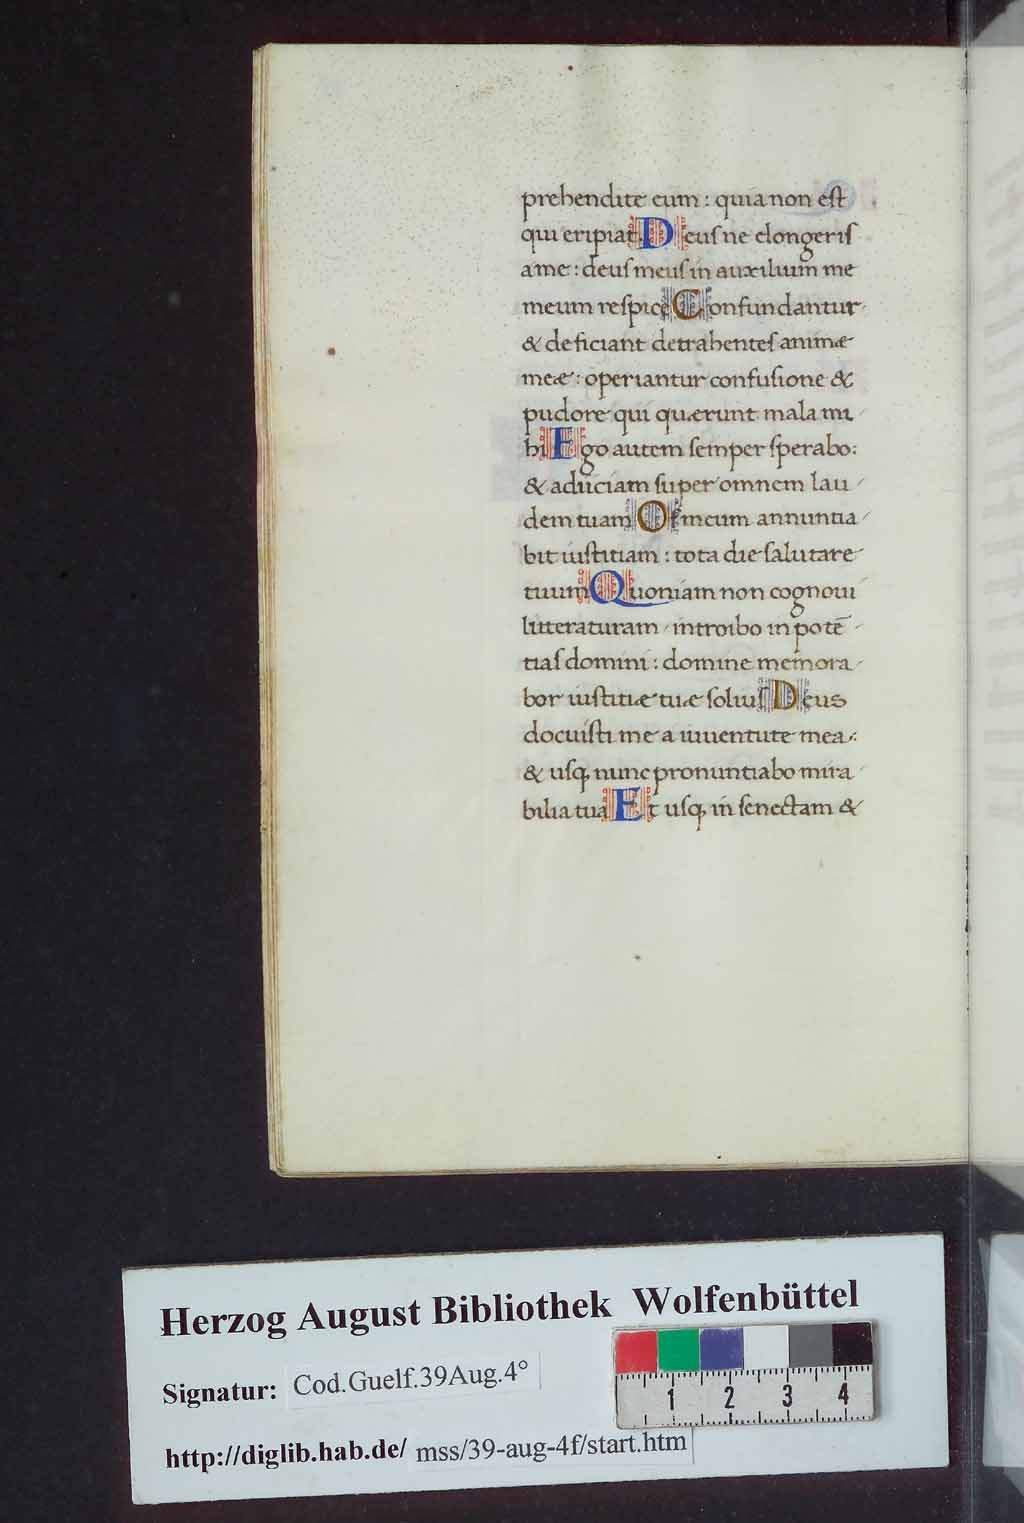 prehendite eum : quia non est
qui eripiat. Deus ne elongeris
a me : deus meus in auxilium me
meum respice Confundantur
& deficiant detrahentes animæ
meæ : operiantur confusione &
pudore qui quærunt mala mi
hi Ego autem semper sperabo :
& adiiciam super omnem lau
dem tuam Os meum annuntia
bit iustitiam : tota die salutare
tuum Quoniam non cognoui
litteraturam introibo in potē
tias domini : domine memora
bor iustitiæ tuæ solius Deus
docuisti me a iuuentute mea :
& usq nunc pronuntiabo mira
bilia tua Et usq in senectam &
Herzog August Bibliothek Wolfenbüttel
Signatur: Cod.Guelf.39Aug.4°
http://diglib.hab.de/ mss/39-aug-4f/start.htm
1 2 3 4